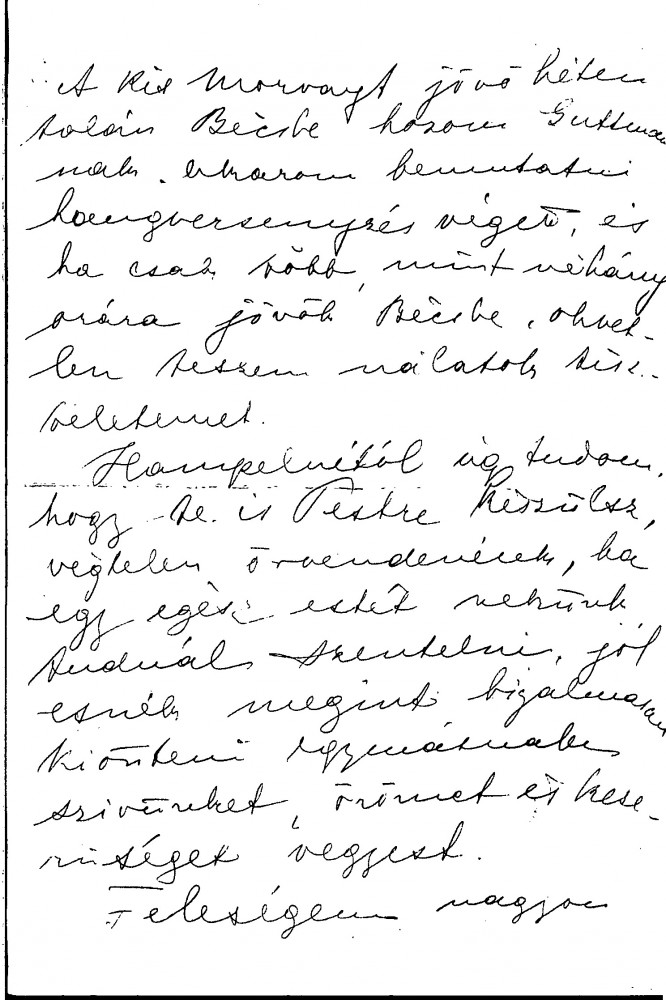 A kis Morvayt jövő héten
talán Bécsbe hozom Guttman
nak. Akarom bemutatni
hangversenyzés végett, és
ha csak több, mint néhány
órára jövök Bécsbe, okvet-
len teszem nálatok tisz-
teletemet.
Hampelnétől úg tudom,
hogy te is Pestre készülsz,
végtelen örvendenénk, ha
egy egész estét nekünk
tudnál szentelni, jól
esnék megint bizalmasan
kiönteni egymásnak
szivünket, örömet és kese-
rüséget vegyest.
Feleségem nagyon